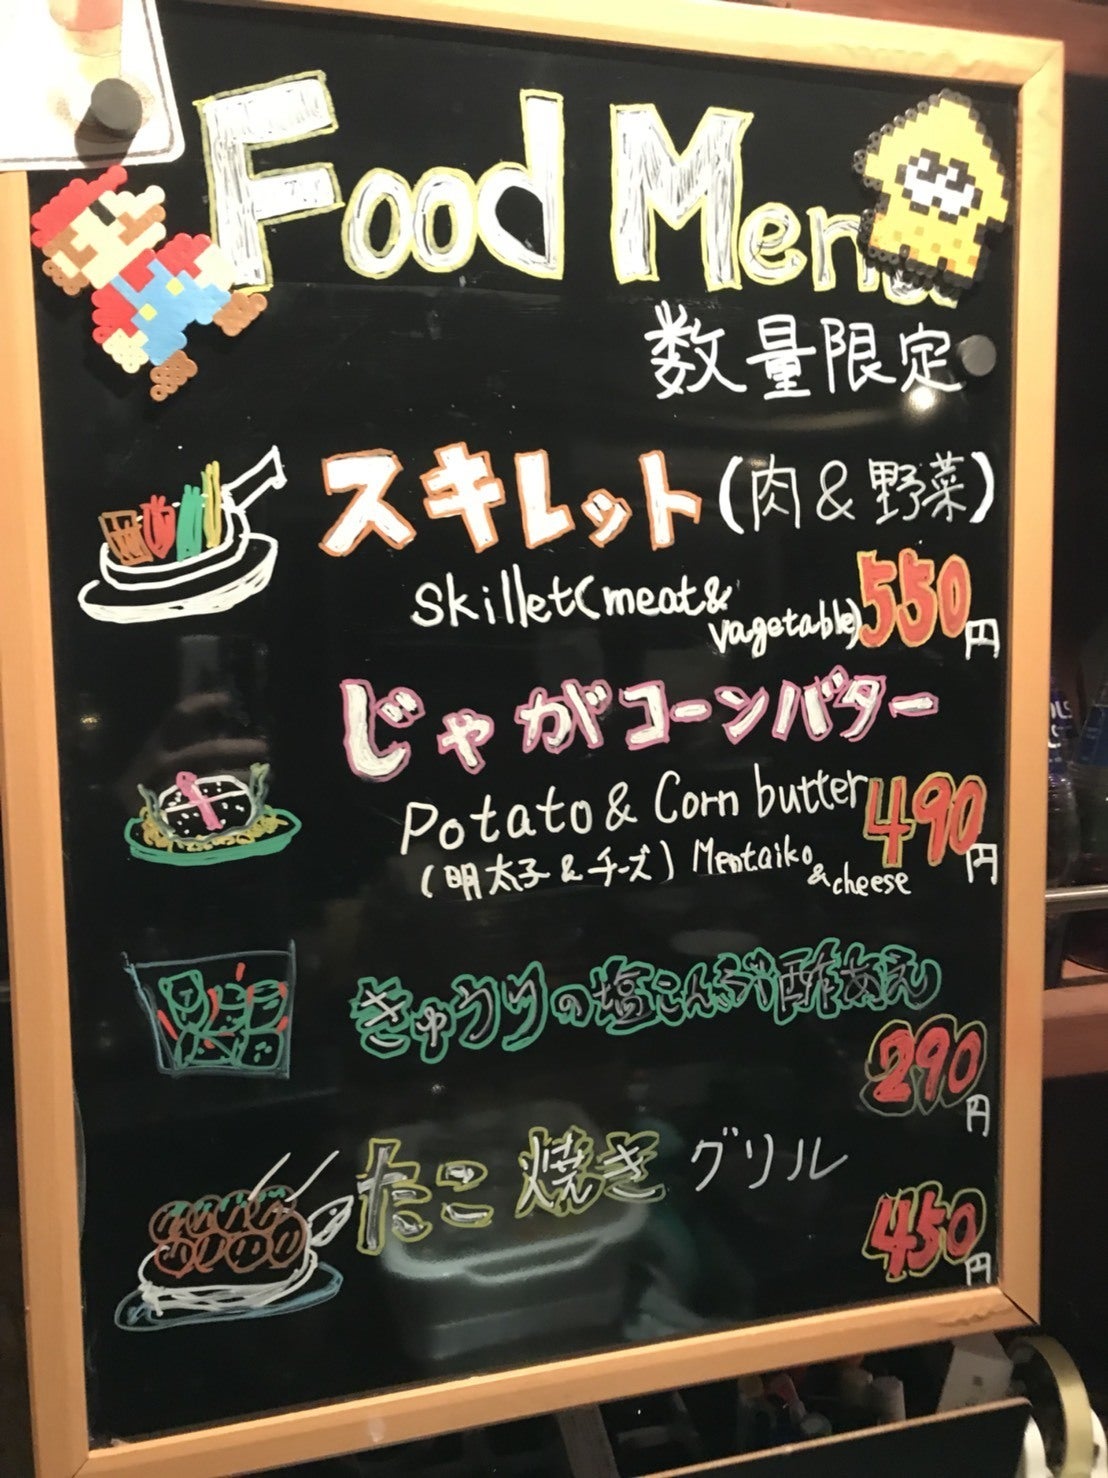 Food Menu
数量限定
スキレット(肉&野菜)
skillet(meat&
vagetable)
550円
じゃがコーンバター
Potato & Corn butter
490円
(明太子&チーズ) Mentaiko
&cheese
きゅうりの塩こんぶ酢あえ
290円
たこ焼きグリル
450円